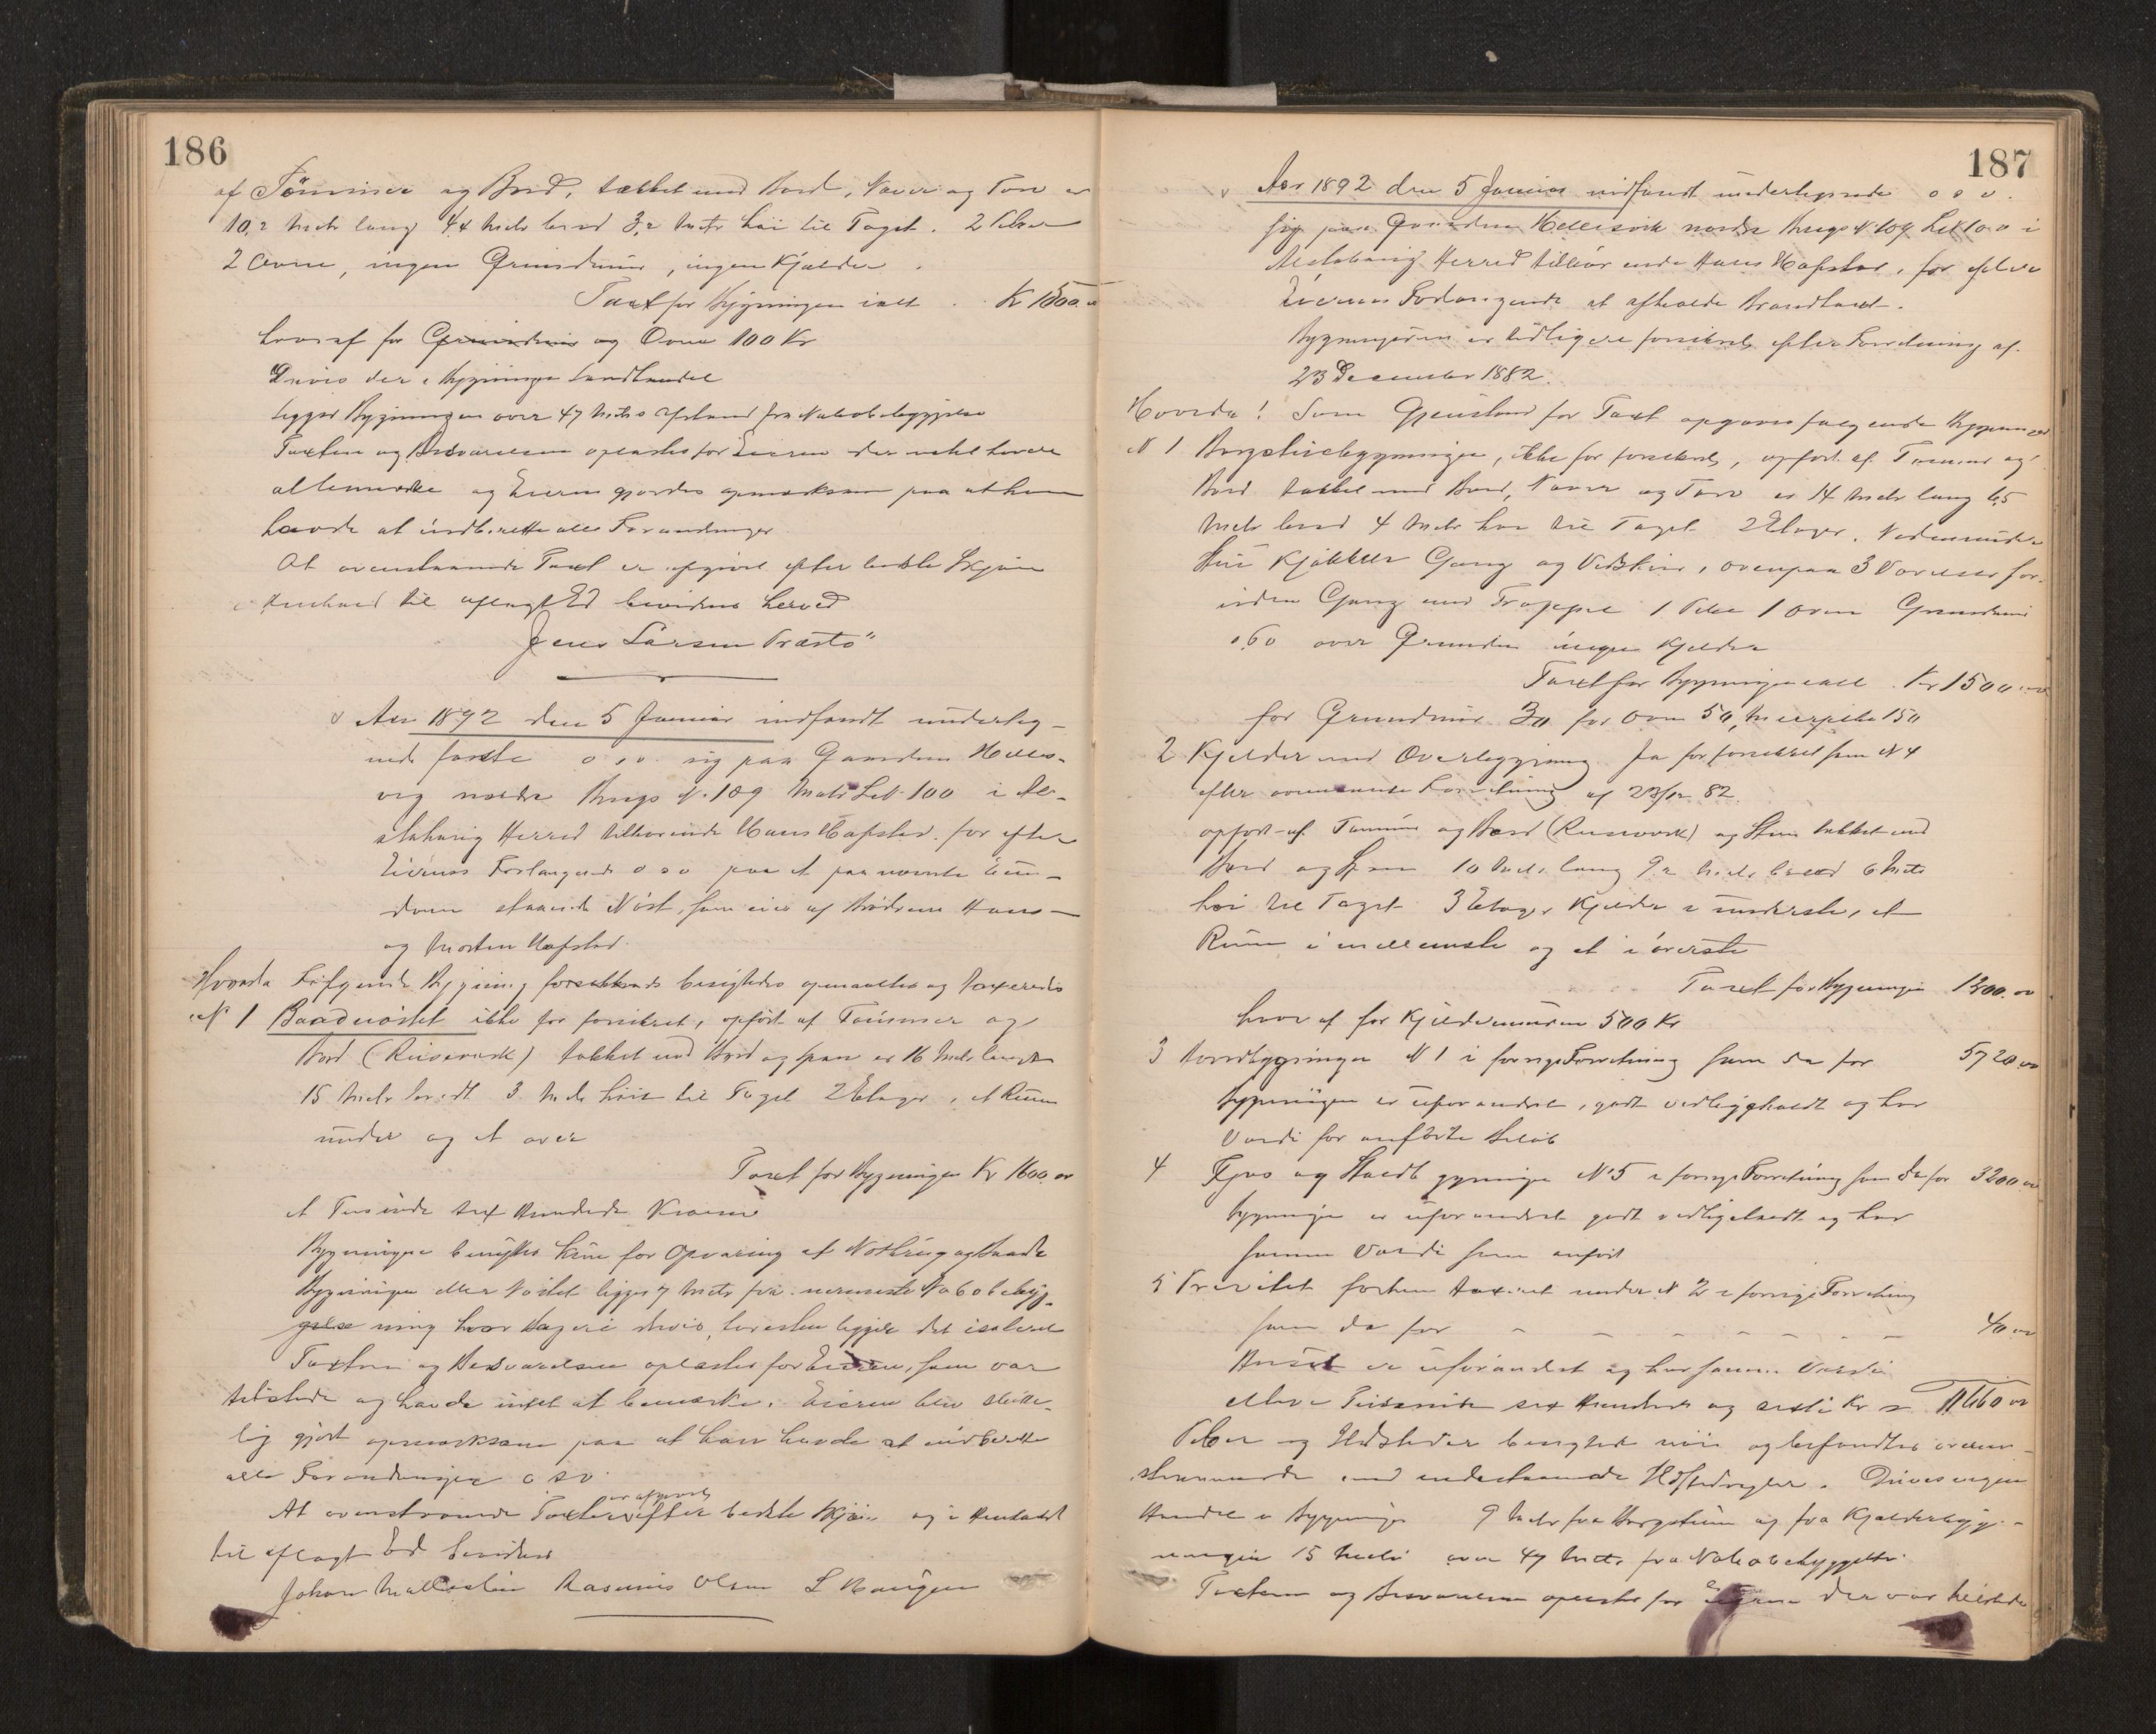 186
af Tömmer og Bord, tækket med Bord, Næver og Torv er
10,2 Metr lang 4,4 Metr bred 3,2 Metr høi til Taget. 2 Piber
2 Ovne, ingen Grundmur, ingen Kjælder.
Taxt for Bygningen ialt . Kr 1500.
hvoraf for Grundmur og Ovne 100 Kr
Drives der i Bygningen Landhandel
ligger Bygningen over 47 Metrs Afstand fra Nabobebyggelse
Taxten og Besvarelsen oplæstes for Eieren der intet havde
at bemærke og Eieren gjordes opmærksom paa at han
havde at indberette alle Forandringer
At ovenstaaende Taxt er afgivet efter bedste Skjøn
i Henhold til aflagt Ed bevidnes herved
Jens Larsen
Aar 1892 den 5 Januar indfandt underteg-
nede sig paa Gaarden Helles-
vig nordre Brugs N. 109 Matr Lit 100 i
Herred tilhørende Hans Hafstad for efter
Eierens Forlangende o s v paa et paa nævnte Eien-
dom staaende Nöst, som eies af Brødrene Hans
og Morten Hafstad.
Hvorda Følgende Bygning besigtedes opmaaltes og taxeredes
N 1 Baadnöstet ikke før forsikret, opført af Tömmer og
Bord (Reisverk) tækket med Bord og Spaan er 16 Metr langt
15 Metr bredt 3 Metr höit til Taget 2 Etager, et Rum
under og et over
Taxt for Bygningen Kr 1600,00
et Tusinde sex Hundrede Kroner
Bygningen benyttes kun for Opvaring af Notbrug og Baade
Bygningen eller Nöstet ligger 7 Metr fra nærmeste Nabobebyg-
ning hvor Bageri drives, foresten ligger det isoleret
Taxten og Besvarelsen oplæstes for Eieren, som var
tilstede og havde intet at bemærke. Eieren blev slutte-
lig gjort opmærksom paa at han havde at indberette
alle Forandringer o s v.
At ovenstaaende Taxt er afgivet efter bedste Skjön og i Henhold
til aflagt Ed bevidnes
Johan Rasmus Olsen L Haugen
187
Aar 1892 den 5 Januar indfandt undertegnede o s v.
sig paa Gaarden Hellesvik nordre Brugs N 109 Lit 100 i
Herred tilhørende Hans Hafstad, for efter
Eierens Forlangende at afholde Brandtaxt.
Bygningerne er tidligere forsikret efter Forretning af
23 December 1882.
Hvorda! Som Gjenstand for Taxt opgaves følgende Bygninger
N 1 Borgstuebygningen, ikke før forsikret, opført af Tømmer og
Bord tækket med Bord, Næver og Torv er 14 Metr lang 6,5
Metr bred 4 Metr høi til Taget 2 Etager. Nedenunder
Stue Kjøkken Gang og Vedskur, ovenpaa 3 Værelser for-
uden Gang med Trappe 1 Pibe 1 Ovn Grundmur
0,60 over Grunden ingen Kjelder
Taxt for Bygningen ialt . Kr 1500,00
for Grundmur 30 for Ovn 50, Murpibe 150
2 Kjelder med Overbygning før forsikret som N 4
efter ovennævnte Forretning af 23/12 82.
opført af Tømmer og Bord (Reisverk) og Sten tækket med
Bord og Spaan 10 Metr lang 9,2 Metr bred 6 Metr
høi til Taget 3 Etager Kjelder i underste, et
Rum i mellemste og et i överste
Taxt for Bygningen 1200.00
hvoraf for Kjeldermuren 500 Kr
3 bygningen N 1 i forrige Forretning som da for 5720,00
Bygningen er uforandret, godt vedligeholdt og har
Værdi for anførte Beløb
4 Fjøs og Staldbygningen N 5 i forrige Forretning som da for 3200,00
Bygningen er uforandret godt vedligeholdt og har
samme Værdi som anført
5 forhen taxeret under N 2 i forrige Forretning
som da for - - - - - - - - 40,00
Huset er uforandret og har samme Værdi
elleve Tusende sex Hundrede og sexti Kr = 11660,00
Piber og Ildsteder besigtedes nøie og befandtes overens-
stemmende med Drives ingen
Handel i Bygningen 9 Metr fra Borgstuen og fra Kjælderbyg-
ningen 15 Metr over 47 Metr fra Nabobebyggelse.
Taxten og Besvarelsen oplæstes for Eieren der var tilstede